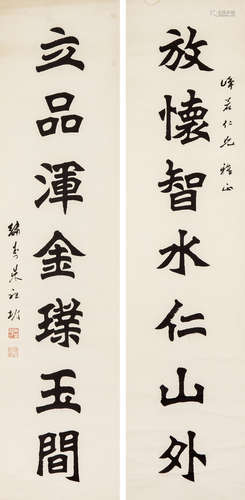 放懷智水仁山外
峰若仁兄雅正
立品渾金璞玉間